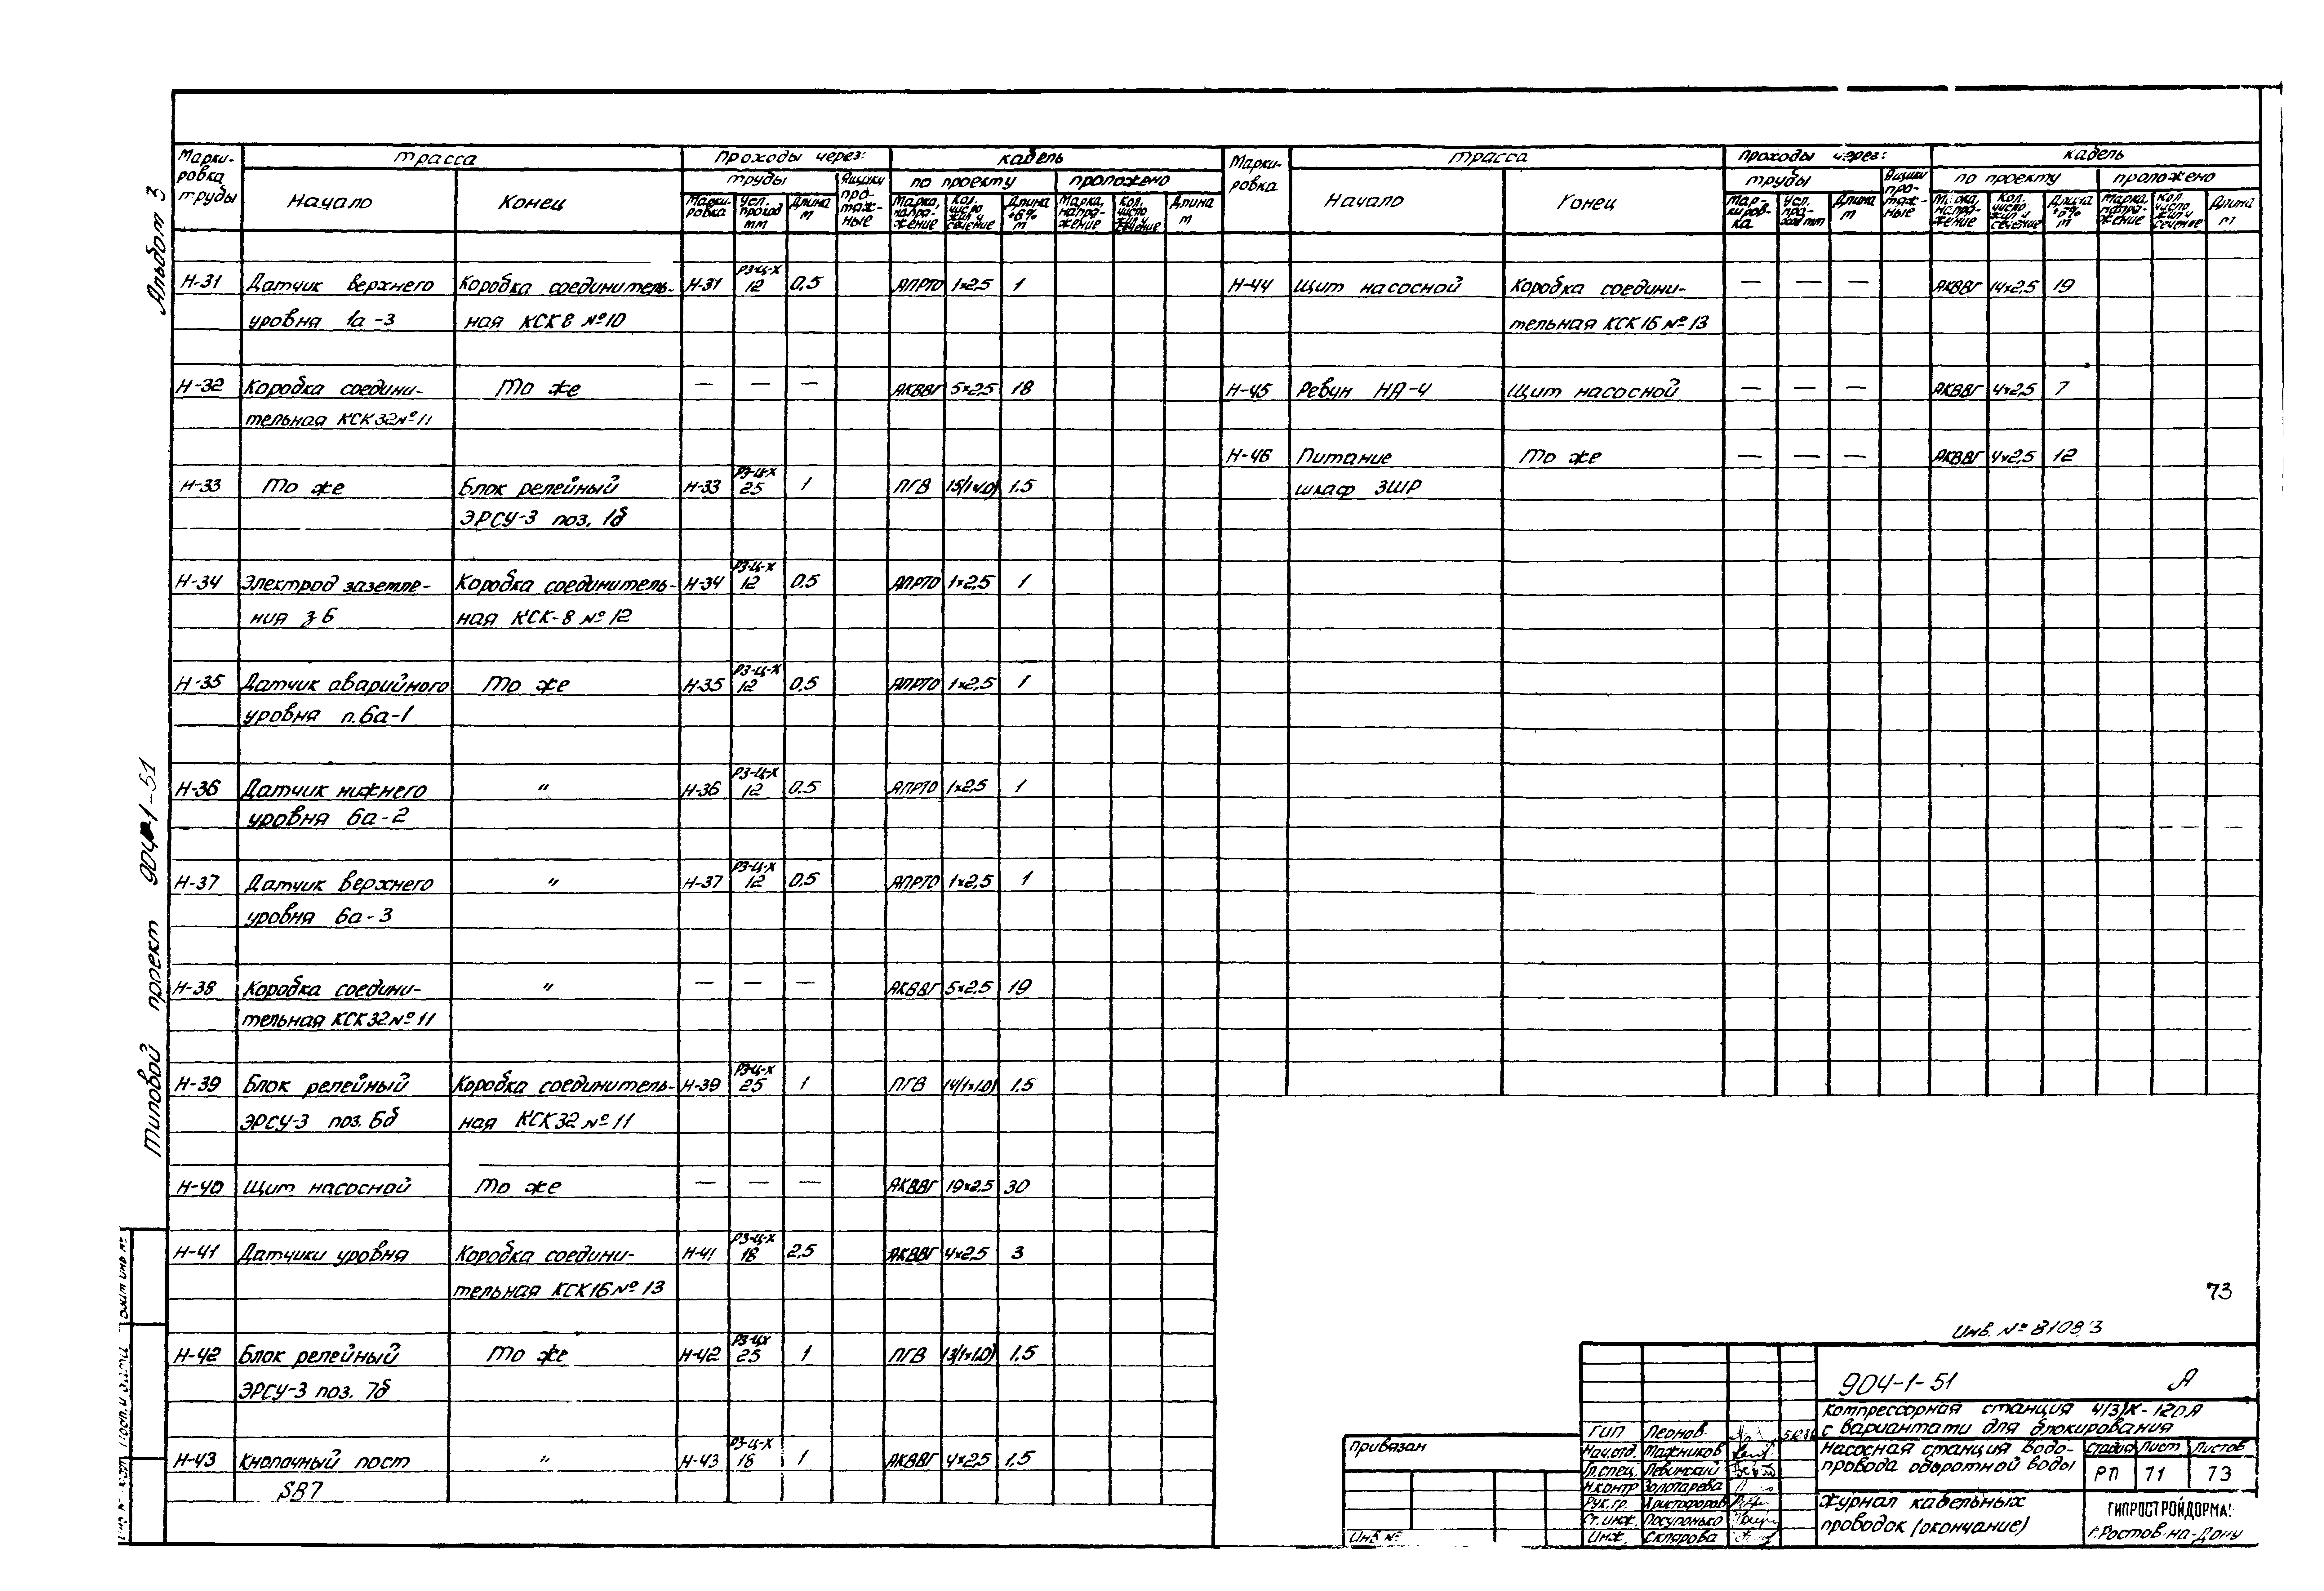 Альбом 3
Типовой проект 904-1-51
Марки-ровка трубы | трасса | Проходы через: | кабель
Начало | Конец | трубы | Ящики про-тяж-ные | по проекту | проложено
Марки-ровка | Усл. проход мм | Длина м | Марка, напря-жение | Кол. число жил и сечение | Длина +6% м | Марка, напря-жение | Кол. число жил и сечение | Длина м
Н-31 Датчик верхнего Коробка соединитель- Н-31 РЗ-Ц-Х 12 0,5 АПРТО 1×2,5 1
уровня 1а-3 ная КСК8 №10
Н-32 Коробка соедини- То же — — — АКВВГ 5×2,5 18
тельная КСК32 №11
Н-33 То же Блок релейный Н-33 РЗ-Ц-Х 25 1 ПГВ 15(1×1,0) 1,5
ЭРСУ-3 поз. 1б
Н-34 Электрод заземле- Коробка соединитель- Н-34 РЗ-Ц-Х 12 0,5 АПРТО 1×2,5 1
ния з6 ная КСК-8 №12
Н-35 Датчик аварийного То же Н-35 РЗ-Ц-Х 12 0,5 АПРТО 1×2,5 1
уровня п.6а-1
Н-36 Датчик нижнего " Н-36 РЗ-Ц-Х 12 0.5 АПРТО 1×2,5 1
уровня 6а-2
Н-37 Датчик верхнего " Н-37 РЗ-Ц-Х 12 0,5 АПРТО 1×2,5 1
уровня 6а-3
Н-38 Коробка соедини- " — — — АКВВГ 5×2,5 19
тельная КСК32 №11
Н-39 Блок релейный Коробка соединитель- Н-39 РЗ-Ц-Х 25 1 ПГВ 14(1×1,0) 1,5
ЭРСУ-3 поз. 6б ная КСК32 №11
Н-40 Щит насосной То же — — — АКВВГ 19×2,5 30
Н-41 Датчики уровня Коробка соедини- Н-41 РЗ-Ц-Х 18 2,5 АКВВГ 4×2,5 3
тельная КСК16 №13
Н-42 Блок релейный То же Н-42 РЗ-ЦХ 25 1 ПГВ 13(1×1,0) 1,5
ЭРСУ-3 поз. 7б
Н-43 Кнопочный пост " Н-43 РЗ-Ц-Х 18 1 АКВВГ 4×2,5 1,5
SB7
Марки-ровка | трасса | проходы через: | кабель
Начало | Конец | трубы | Ящики про-тяж-ные | по проекту | проложено
Мар-киров-ка | Усл. про-ход мм | Длина м | Марка, напря-жение | Кол. число жил и сечение | Длина +6% м | Марка, напря-жение | Кол. число жил и сечение | Длина м
Н-44 Щит насосной Коробка соедини- — — — АКВВГ 14×2,5 19
тельная КСК16 №13
Н-45 Ревун НА-4 Щит насосной — — — АКВВГ 4×2,5 7
Н-46 Питание То же — — — АКВВГ 4×2,5 12
шкаф 3ШР
73
Инв. № 8108/3
904-1-51 А
компрессорная станция 4(3)К-120А
с вариантами для блокирования
Насосная станция водо-
провода оборотной воды
Стадия Лист Листов
РП 71 73
Журнал кабельных
проводок (окончание)
ГИПРОСТРОЙДОРМАШ
г.Ростов-на-Дону
ГИП Леонов
Нач.отд. Мажников
Гл.спец. Левинский
Н.контр Золотарева
Рук.гр. Христофоров
Ст.инж. Посупонько
Инж. Склярова
Привязан
Инв №